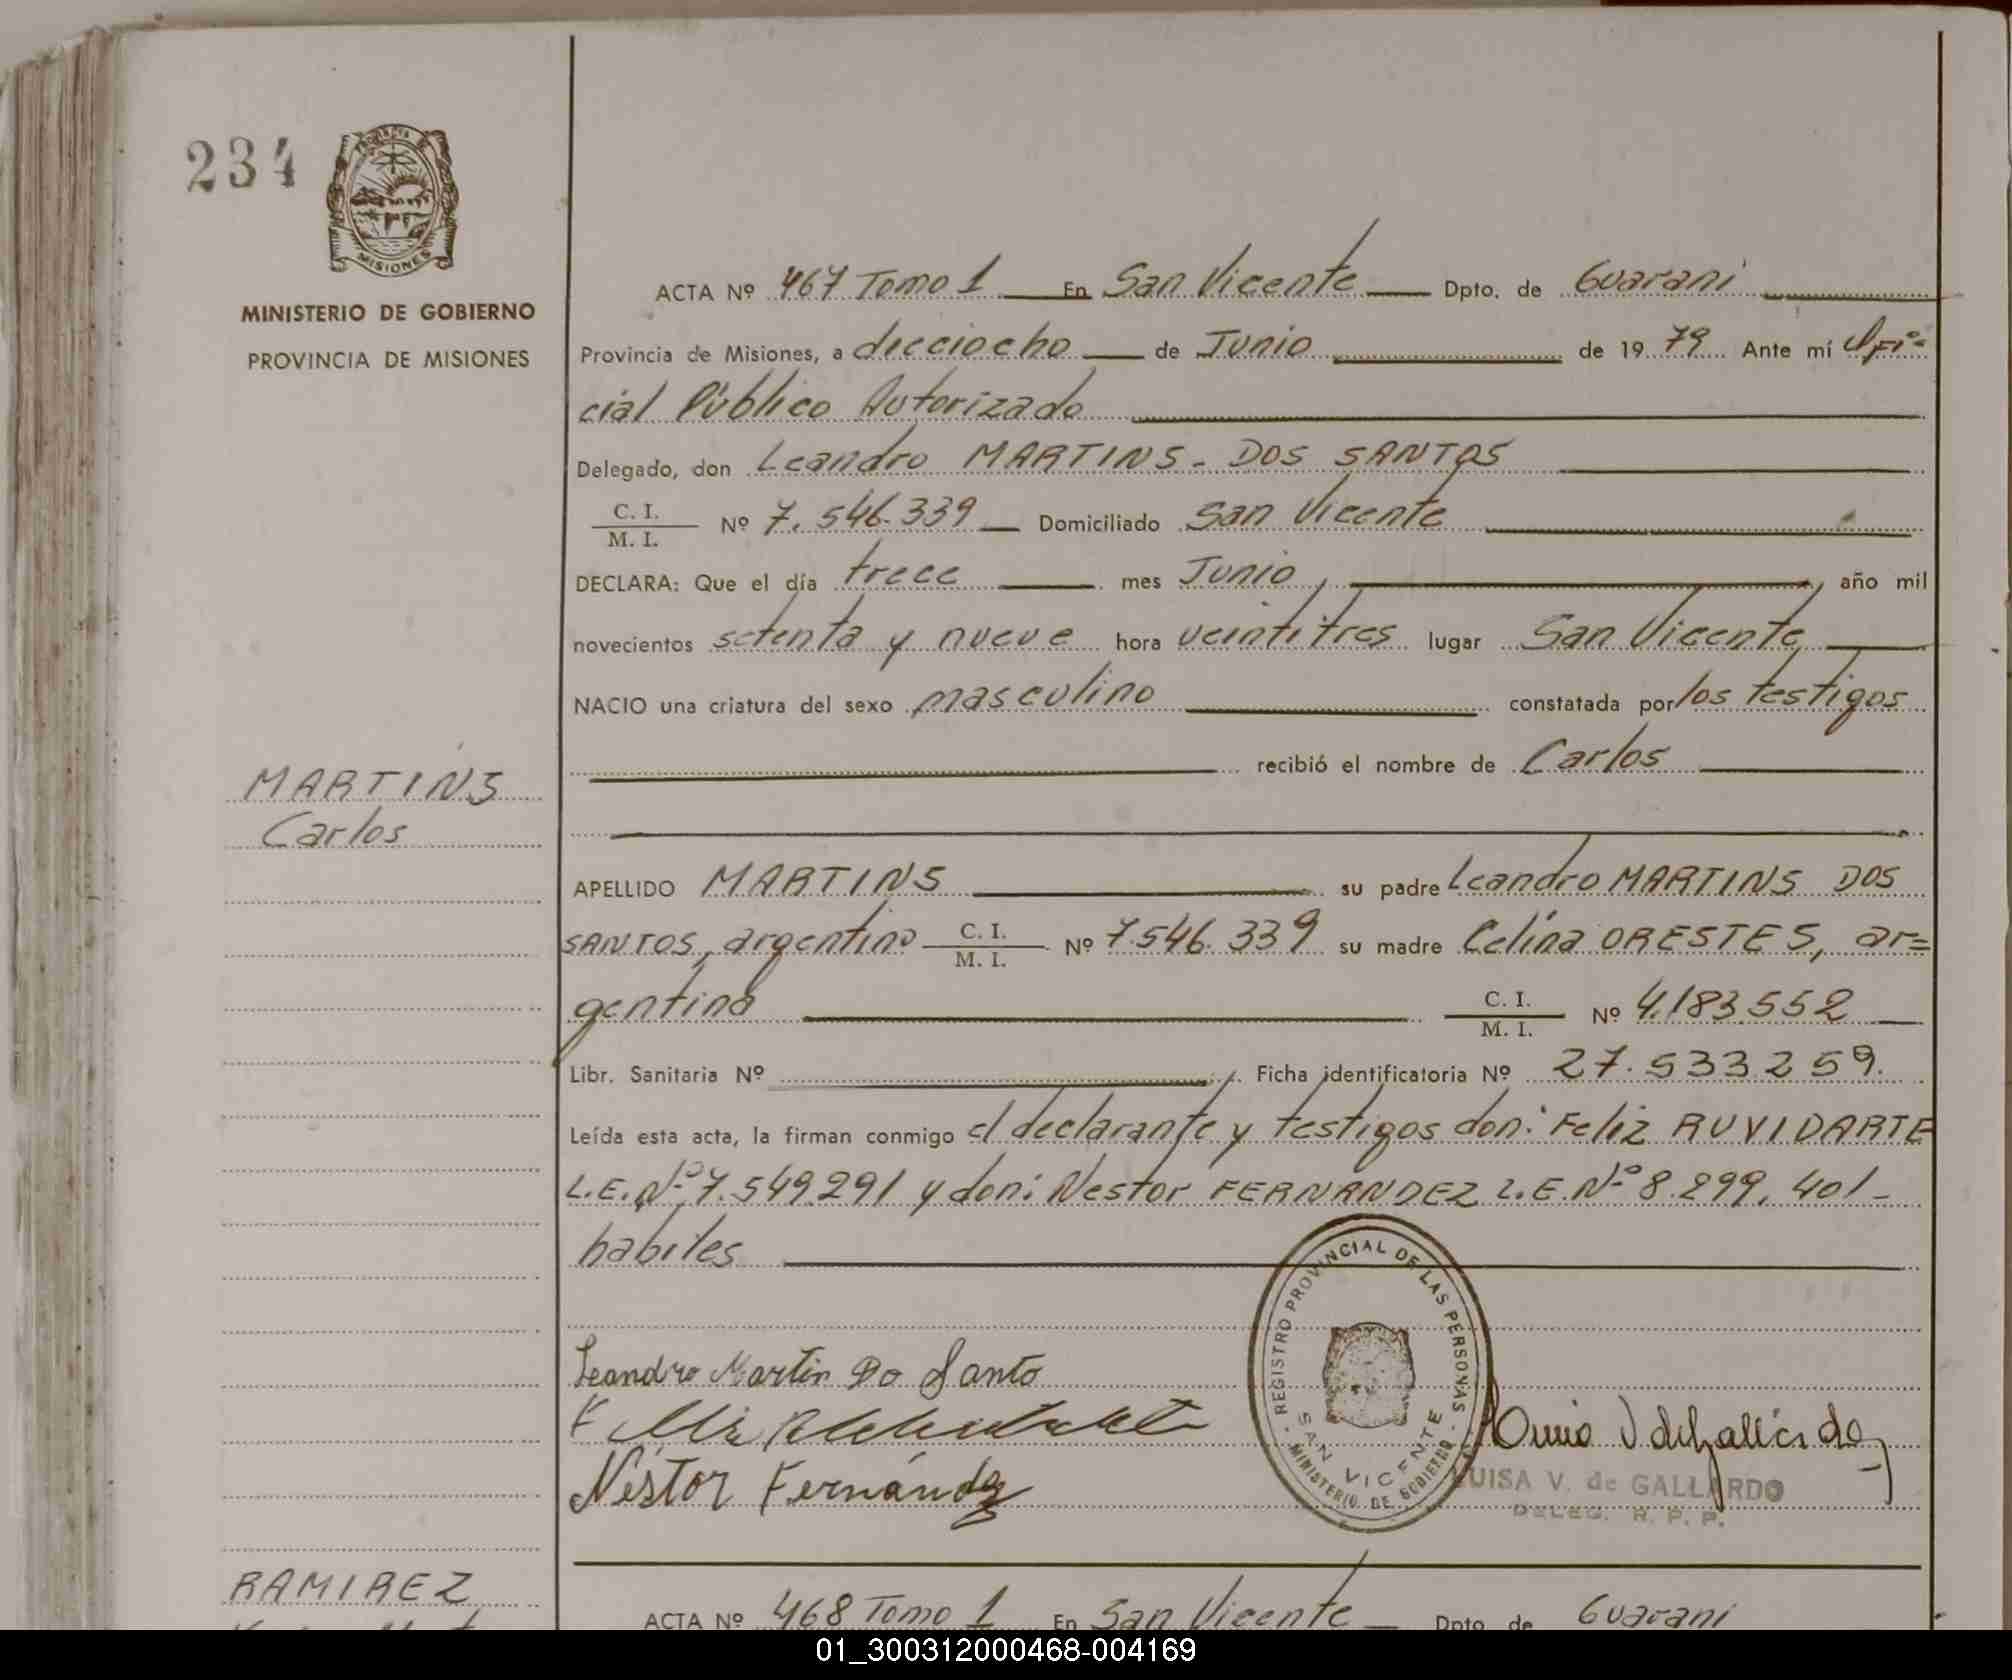 234
PROVINCIA
MISIONES
MINISTERIO DE GOBIERNO
PROVINCIA DE MISIONES
ACTA Nº 467 Tomo 1 En San Vicente Dpto. de Guarani
Provincia de Misiones, a diecciocho de Junio de 1979 Ante mí Ofi=
cial Público Autorizado
Delegado, don Leandro MARTINS - DOS SANTOS
C. I.
M. I. Nº 7.546.339 Domiciliado San Vicente
DECLARA: Que el día trece mes Junio, año mil
novecientos setenta y nueve hora veintitres lugar San Vicente
NACIO una criatura del sexo masculino constatada por los testigos
recibió el nombre de Carlos
MARTINS
Carlos
APELLIDO MARTINS su padre Leandro MARTINS DOS
SANTOS, argentino C. I.
M. I. Nº 7.546.339 su madre Celina ORESTES, ar=
gentina C. I.
M. I. Nº 4.183.552
Libr. Sanitaria Nº Ficha identificatoria Nº 27.533259.
Leída esta acta, la firman conmigo el declarante y testigos don: Feliz RUVIDARTE
L.E. Nº 7.549.291 y don: Nestor FERNANDEZ L.E. Nº 8.299.401-
habiles
REGISTRO PROVINCIAL DE LAS PERSONAS
SAN VICENTE
MINISTERIO DE GOBIERNO
Leandro Martin Do Santo
Néstor Fernández
LUISA V. de GALLARDO
DELEG. R. P. P.
RAMIREZ
ACTA Nº 468 Tomo 1 En San Vicente Dpto de Guarani
01_300312000468-004169